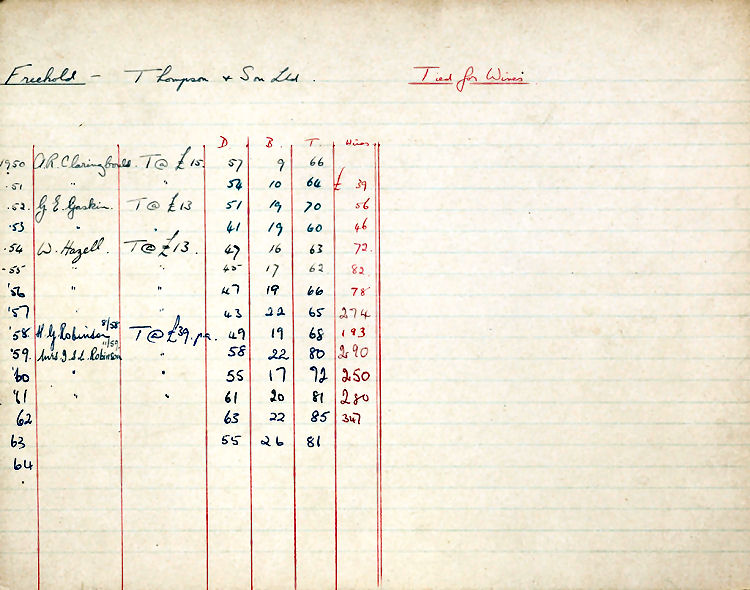 Freehold - Thompson & Son Ltd. Tied for Wines
D B. T. Wines
1950 A.R. Claringbould. T @ £15. 57 9 66
.51 " " 54 10 64 £ 39
.52. G E Gaskin. T @ £13 51 19 70 56
.53 " " 41 19 60 46
.54 W. Hazell. T @ £13. 47 16 63 72.
-55 " " 45 17 62 82.
'56 " " 47 19 66 78
'57 " " 43 22 65 274
'58. H G Robinson 8/58 T @ £39. p.a. 49 19 68 193
'59. Mrs I.S.L. Robinson 11/59 " 58 22 80 290
'60 " " 55 17 92 250
'61 " " 61 20 81 280
62 63 22 85 347
63 55 26 81
64